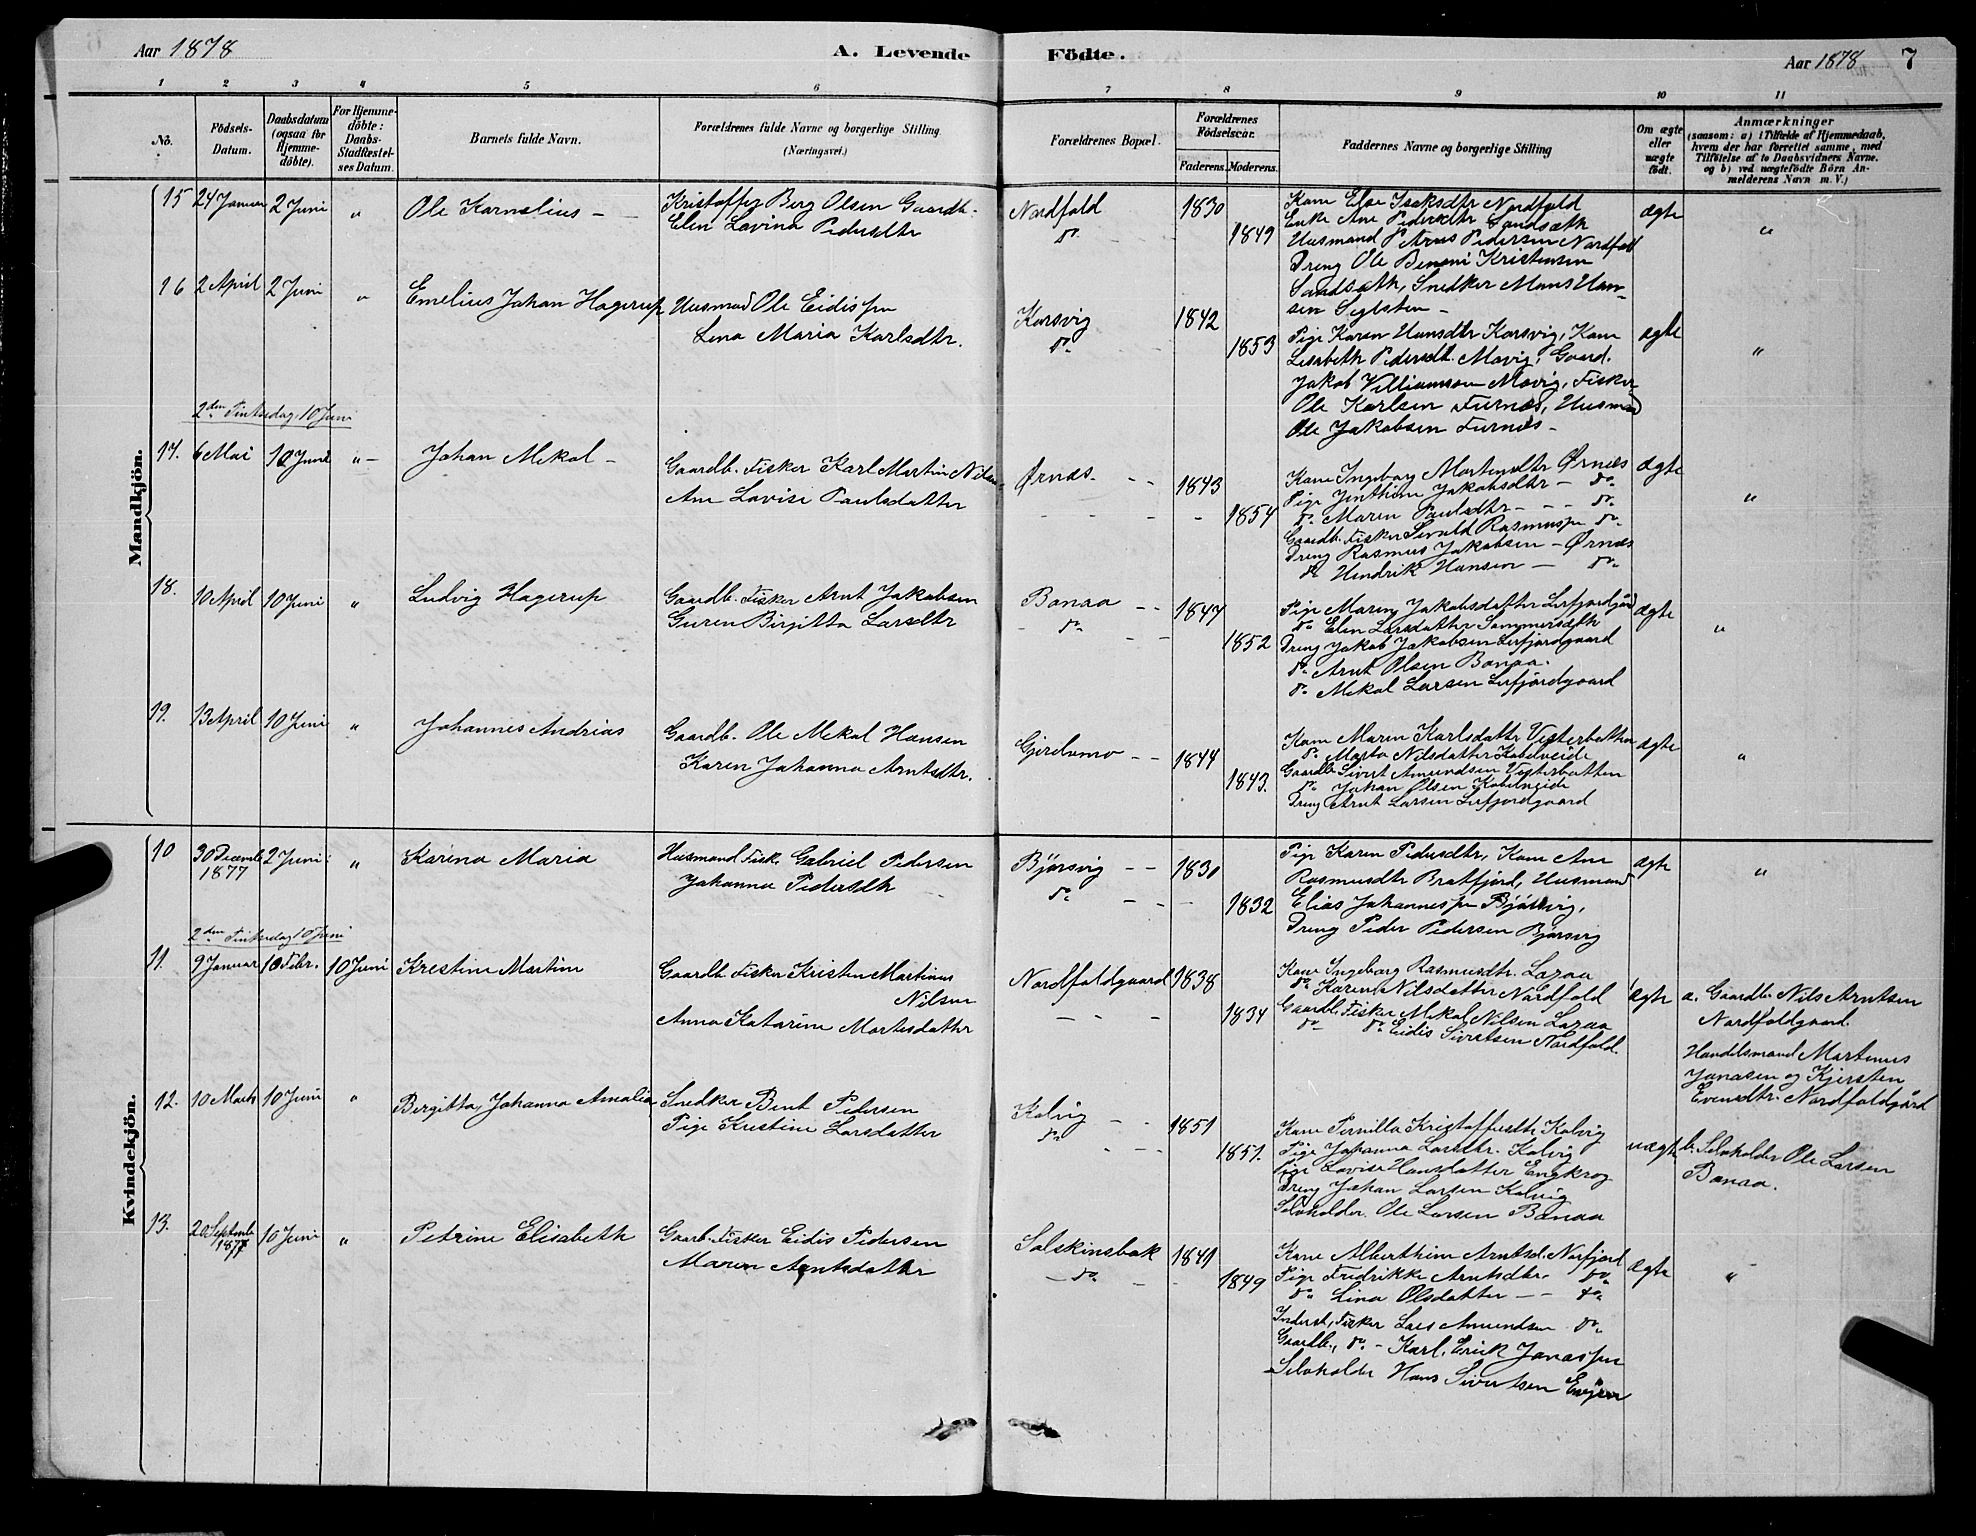 Aar 1878
A. Levende
Födte.
Aar 1878
7
1 2 3 4 5 6 7 8 9 10 11
No.
Födsels-Datum.
Daabsdatum (ogsaa for Hjemme-döbte).
For Hjemme-döbte: Daabs-Stadfæstel-ses Datum.
Barnets fulde Navn.
Forældrenes fulde Navne og borgerlige Stilling. (Næringsvei.)
Forældrenes Bopæl.
Forældrenes Födselsaar.
Faderens. Moderens.
Faddernes Navne og borgerlige Stilling
Om ægte eller uægte födt.
Anmærkninger
(saasom: a) i Tilfælde af Hjemmedaab,
hvem der har forrettet samme, med
Tilföielse af to Daabsvidners Navne.
og b) ved uægtefödte Börn An-
melderens Navn m. V.)
Mandkjön.
15 24 Januar 2 Juni " Ole Kornelius -
Kristoffer Berg Olsen Gaardb.
Elen Lovina Pedersdtr
Nordfold
do
1830
1849
Kone Else Isaksdtr Nordfold
Enke Ane Pedersdtr Sandsæth
Husmand Petrus Pedersen Nordfold
Dreng Ole Benoni Kristensen
Sandsæth, Snedker Mons Han-
sen Seglsten -
ægte
"
16 2 April 2 Juni " Emelius Johan Hagerup
Husmad Ole Eidissen
Lena Maria Karlsdtr.
Korsvig
do
1842
1853
Pige Karen Hansdtr Korsvig, Kone
Lisabeth Pedersdt. Movig, Gaard.
Jakob Villiamsen Movig, Fisker
Ole Karlsen Furnes, Husmd
Ole Jakobsen Furnes -
ægte
"
2den Pintsedag 10 Juni
17. 6 Mai 10 Juni " - Johan Mekal -
Gaardb. Fisker Karl Martin Nilsen
Ane Lovise Paulsdatter
Ørnæs -
1843
1854
Kone Ingeborg Mortensdtr Ørnæs
Pige Jenthine Jakobsdtr - do
do Maren Paulsdtr - - - do
Gaardb. Fisker Sivald Rasmussen do
Dreng Rasmus Jakobsen - Ørnæs
do Hendrik Hansen - do
ægte
"
18. 10 April 10 Juni " Ludvig Hagerup
Gaardb. Fisker Arnt Jakobsen
Guren Birgitta Larsdtr
Bonaa - -
do
1847
1852
Pige Maren Jakobsdatter Lerfjordgård
do Elen Larsdatter Sommersæth
Dreng Jakob Jakobsen Lerfjordgaard
do Arnt Olsen Bonaa.
do Mekal Larsen Lerfjordgaard
ægte
"
19. 13 April 10 Juni " Johannes Andrias
Gaardb. Ole Mekal Hansen
Karen Johanna Arntsdtr.
Gjerdemo - -
1844
1843.
Kone Maren Karlsdattr Vesterbotten
P. Marta Nilsdatter Kobelveide
Gaardb. Sivert Amundsen Vesterbotten
do Johan Olsen Kobelveide
Dreng Arnt Larsen Lerfjordgaard
ægte
"
Kvindekjön.
10 30 Decemb 1877 2 Juni " Karina Maria
Husmand Fisk. Gabriel Pedersen
Johanna Pedersdtr
Bjørsvig - -
do
1830
1832
Pige Karen Pedersdtr, Kone Ane
Rasmusdtr Bratfjord, Husmand
Elias Johannessen Bjørsvig,
Dreng Peder Pedersen Bjørsvig
ægte
"
2den Pintsedag 10 Juni
11. 9 Januar 10 Febr. 10 Juni Krestine Martine
Gaardb. Fisker Kristen Martinus
Nilsen
Anna Katarine Mortesdatter
Nordfoldgaard
1838
1834
Kone Ingeborg Rasmusdtr. Lozaa
do Karen Nilsdatter Nordfold
Gaardb. Fisker Mekal Nilsen Lozaa
do do Eidis Sivertsen Nordfold.
ægte
a. Gaardb. Nils Arntsen
Nordfoldgaard.
Handelsmand Martinus
Jonasen og Kjersten
Evensdtr. Nordfoldgård
12. 10 Marts 10 Juni " Birgitta Johanna Amalia
Snedker Bent Pedersen
Pige Kristine Larsdatter
Kolvig
do
1851
1851.
Kone Pernilla Kristoffersdtr Kolvig
Pige Johanna Larsdtr. Kolvig
Pige Lovise Hansdatter Engkrog
Dreng Johan Larsen Kolvig
Selvholder Ole Larsen Bonaa
uægte
b. Selvholder Ole Larsen
Bonaa.
13. 20 Septemb 1877 10 Juni " Petrine Elisabeth
Gaarb. Fisker Eidis Pedersen
Maren Arntsdatter
Solskinsbak
- do -
1841
1849
Kone Alberthine Arntsd. Norfjord
Pige Fredrikke Arntsdtr. do
do Lina Olsdatter - - do
Inderst, Fisker Lars Amundsen do
Gaardb., do - Karl Erick Jonassen
Selvholder Hans Sivertsen
ægte
"